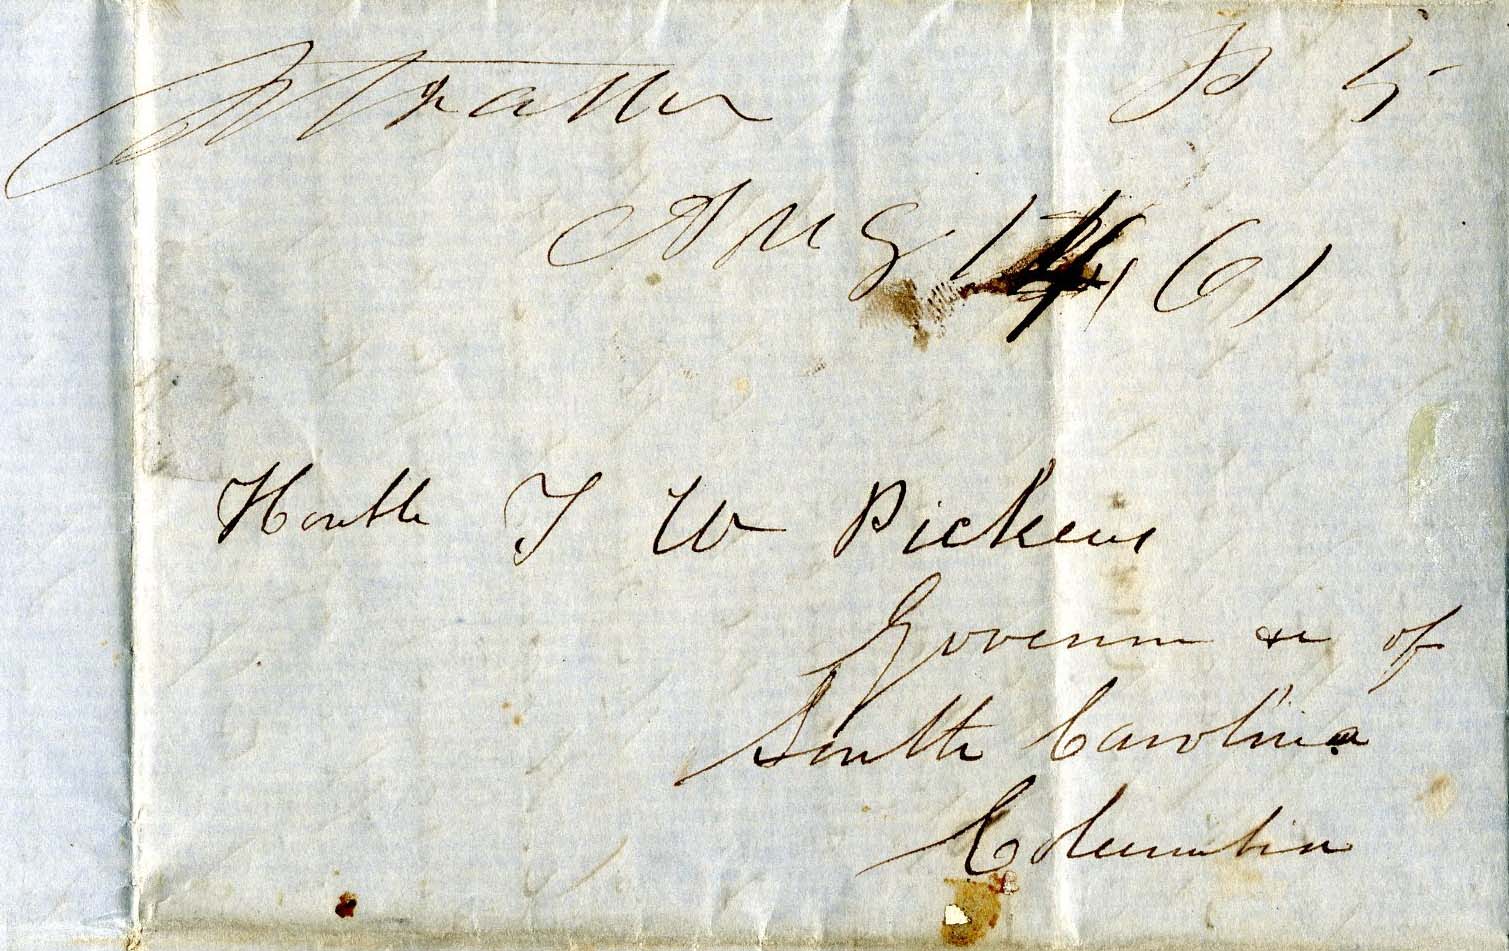 Pd 5
Aug 14 61
Honble F W Pickens
Govennor of
South Carolina
Columbia